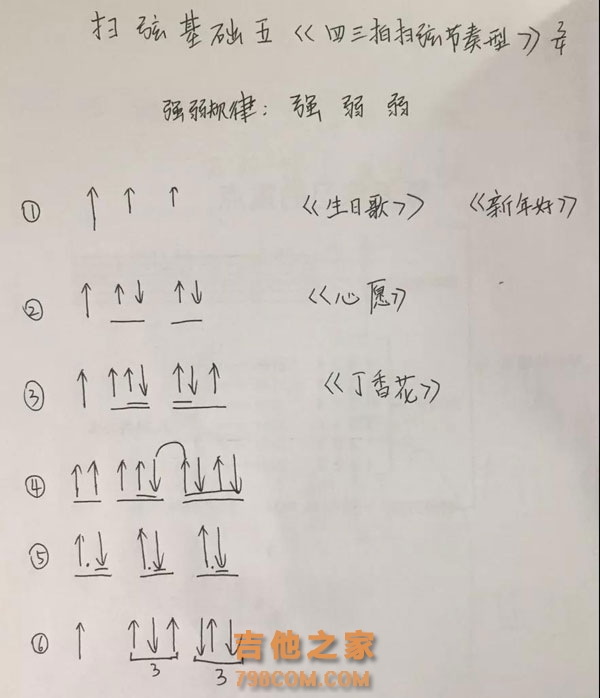 扫弦基础五《四三拍扫弦节奏型》3/4
强弱规律：强 弱 弱
① ↑ ↑ ↑ 《生日歌》 《新年好》
② ↑ ↑↓ ↑↓ 《心愿》
③ ↑ ↑↑↓ ↑↓↑ 《丁香花》
④ ↑↑ ↑↑↓ ↑↓↑↓
⑤ ↑.↓ ↑.↓ ↑.↓
⑥ ↑ ↑↓↑ ↓↑↓
3 3
吉他之家
798COM.COM